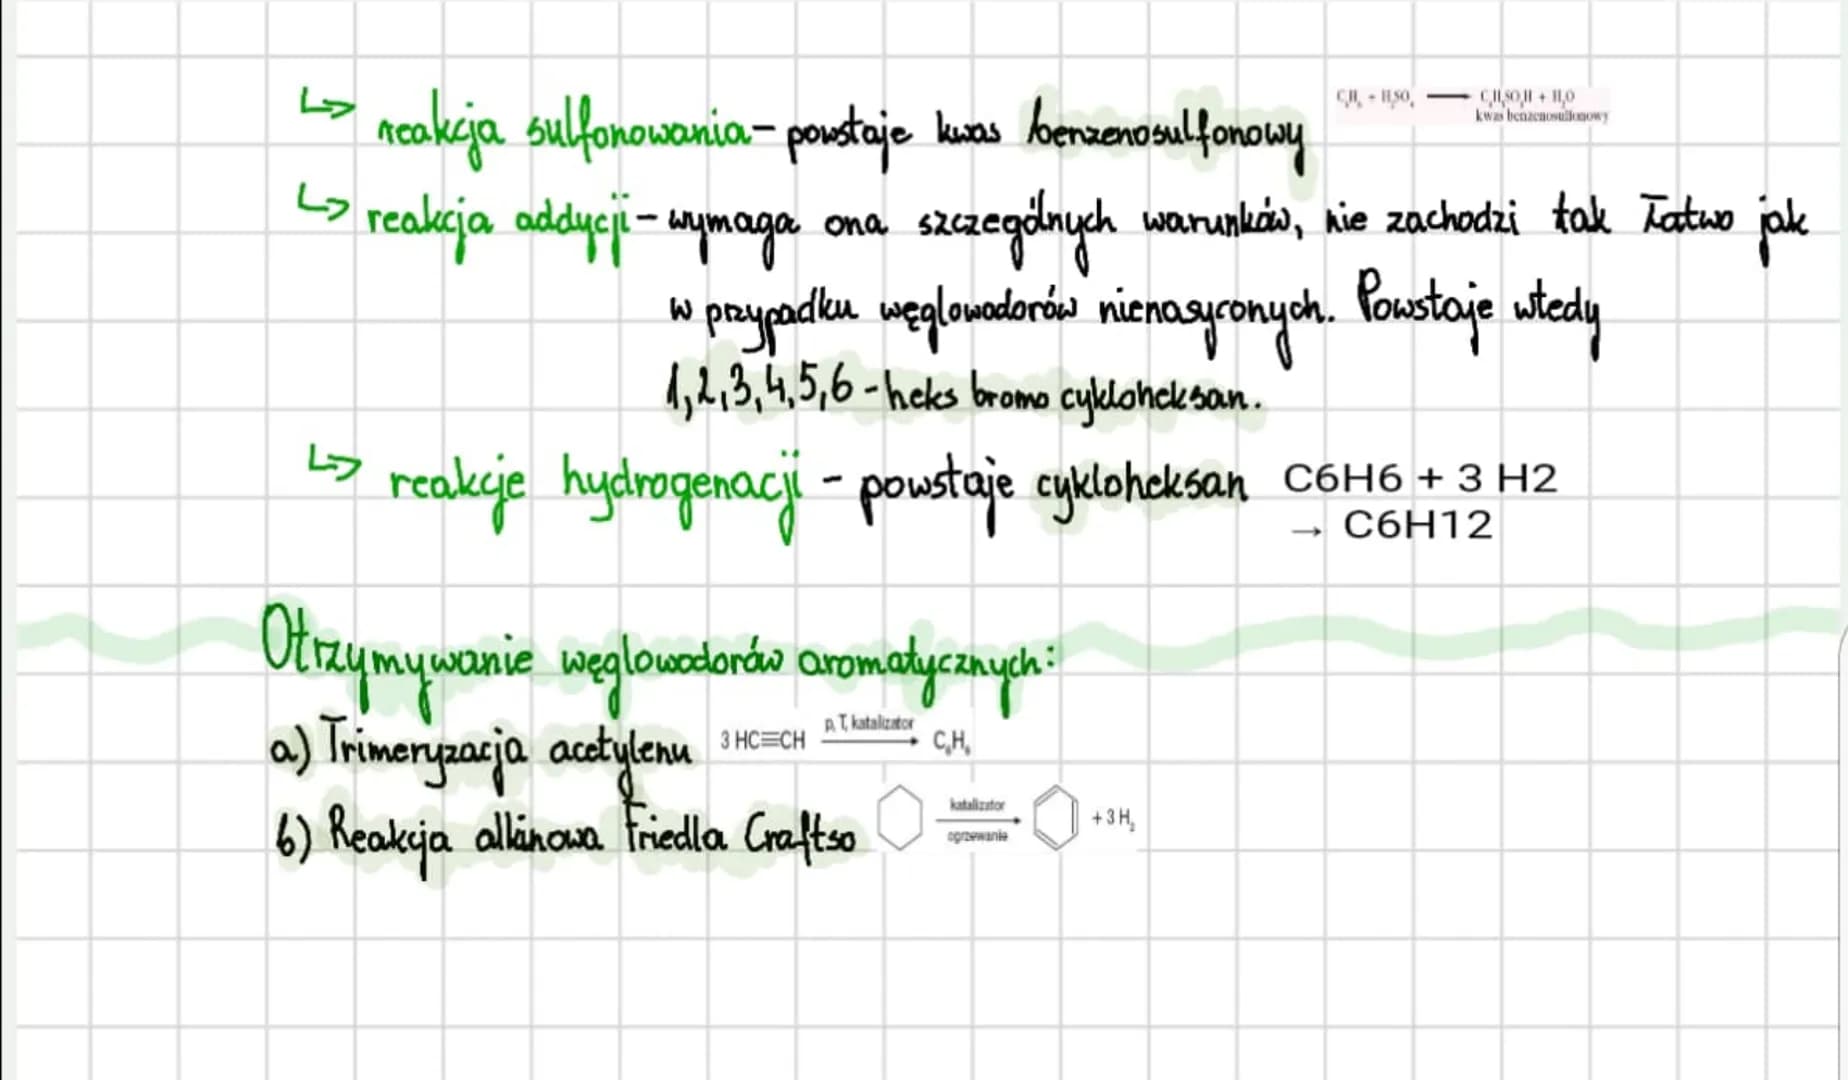 ↳ reakcja sulfonowania - powstaje kwas benzenosulfonowy C₆H₆ + H₂SO₄ ⟶ C₆H₅SO₃H + H₂O
kwas benzenosulfonowy
↳ reakcja addycji - wymaga ona szczególnych warunków, nie zachodzi tak łatwo jak
w przypadku węglowodorów nienasyconych. Powstaje wtedy
1,2,3,4,5,6 - heks bromo cykloheksan.
↳ reakcje hydrogenacji - powstaje cykloheksan C6H6 + 3 H2
→ C6H12
Otrzymywanie węglowodorów aromatycznych:
a) Trimeryzacja acetylenu 3 HC≡CH p, T, katalizator → C₆H₆
b) Reakcja alkinowa Friedla Craftso katalizator → ogrzewanie + 3 H₂